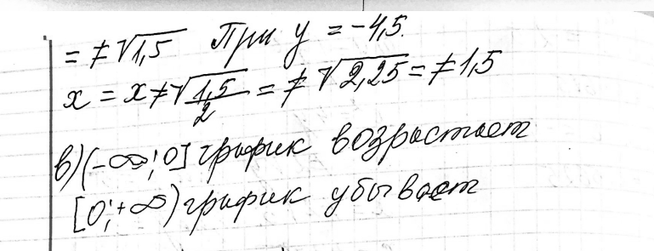 = ≠√1,5 При y = -4,5.
x = x≠√1,5/2 = ≠√2,25 = ≠1,5
в) (-∞; 0] график возрастает
[0; +∞) график убывает